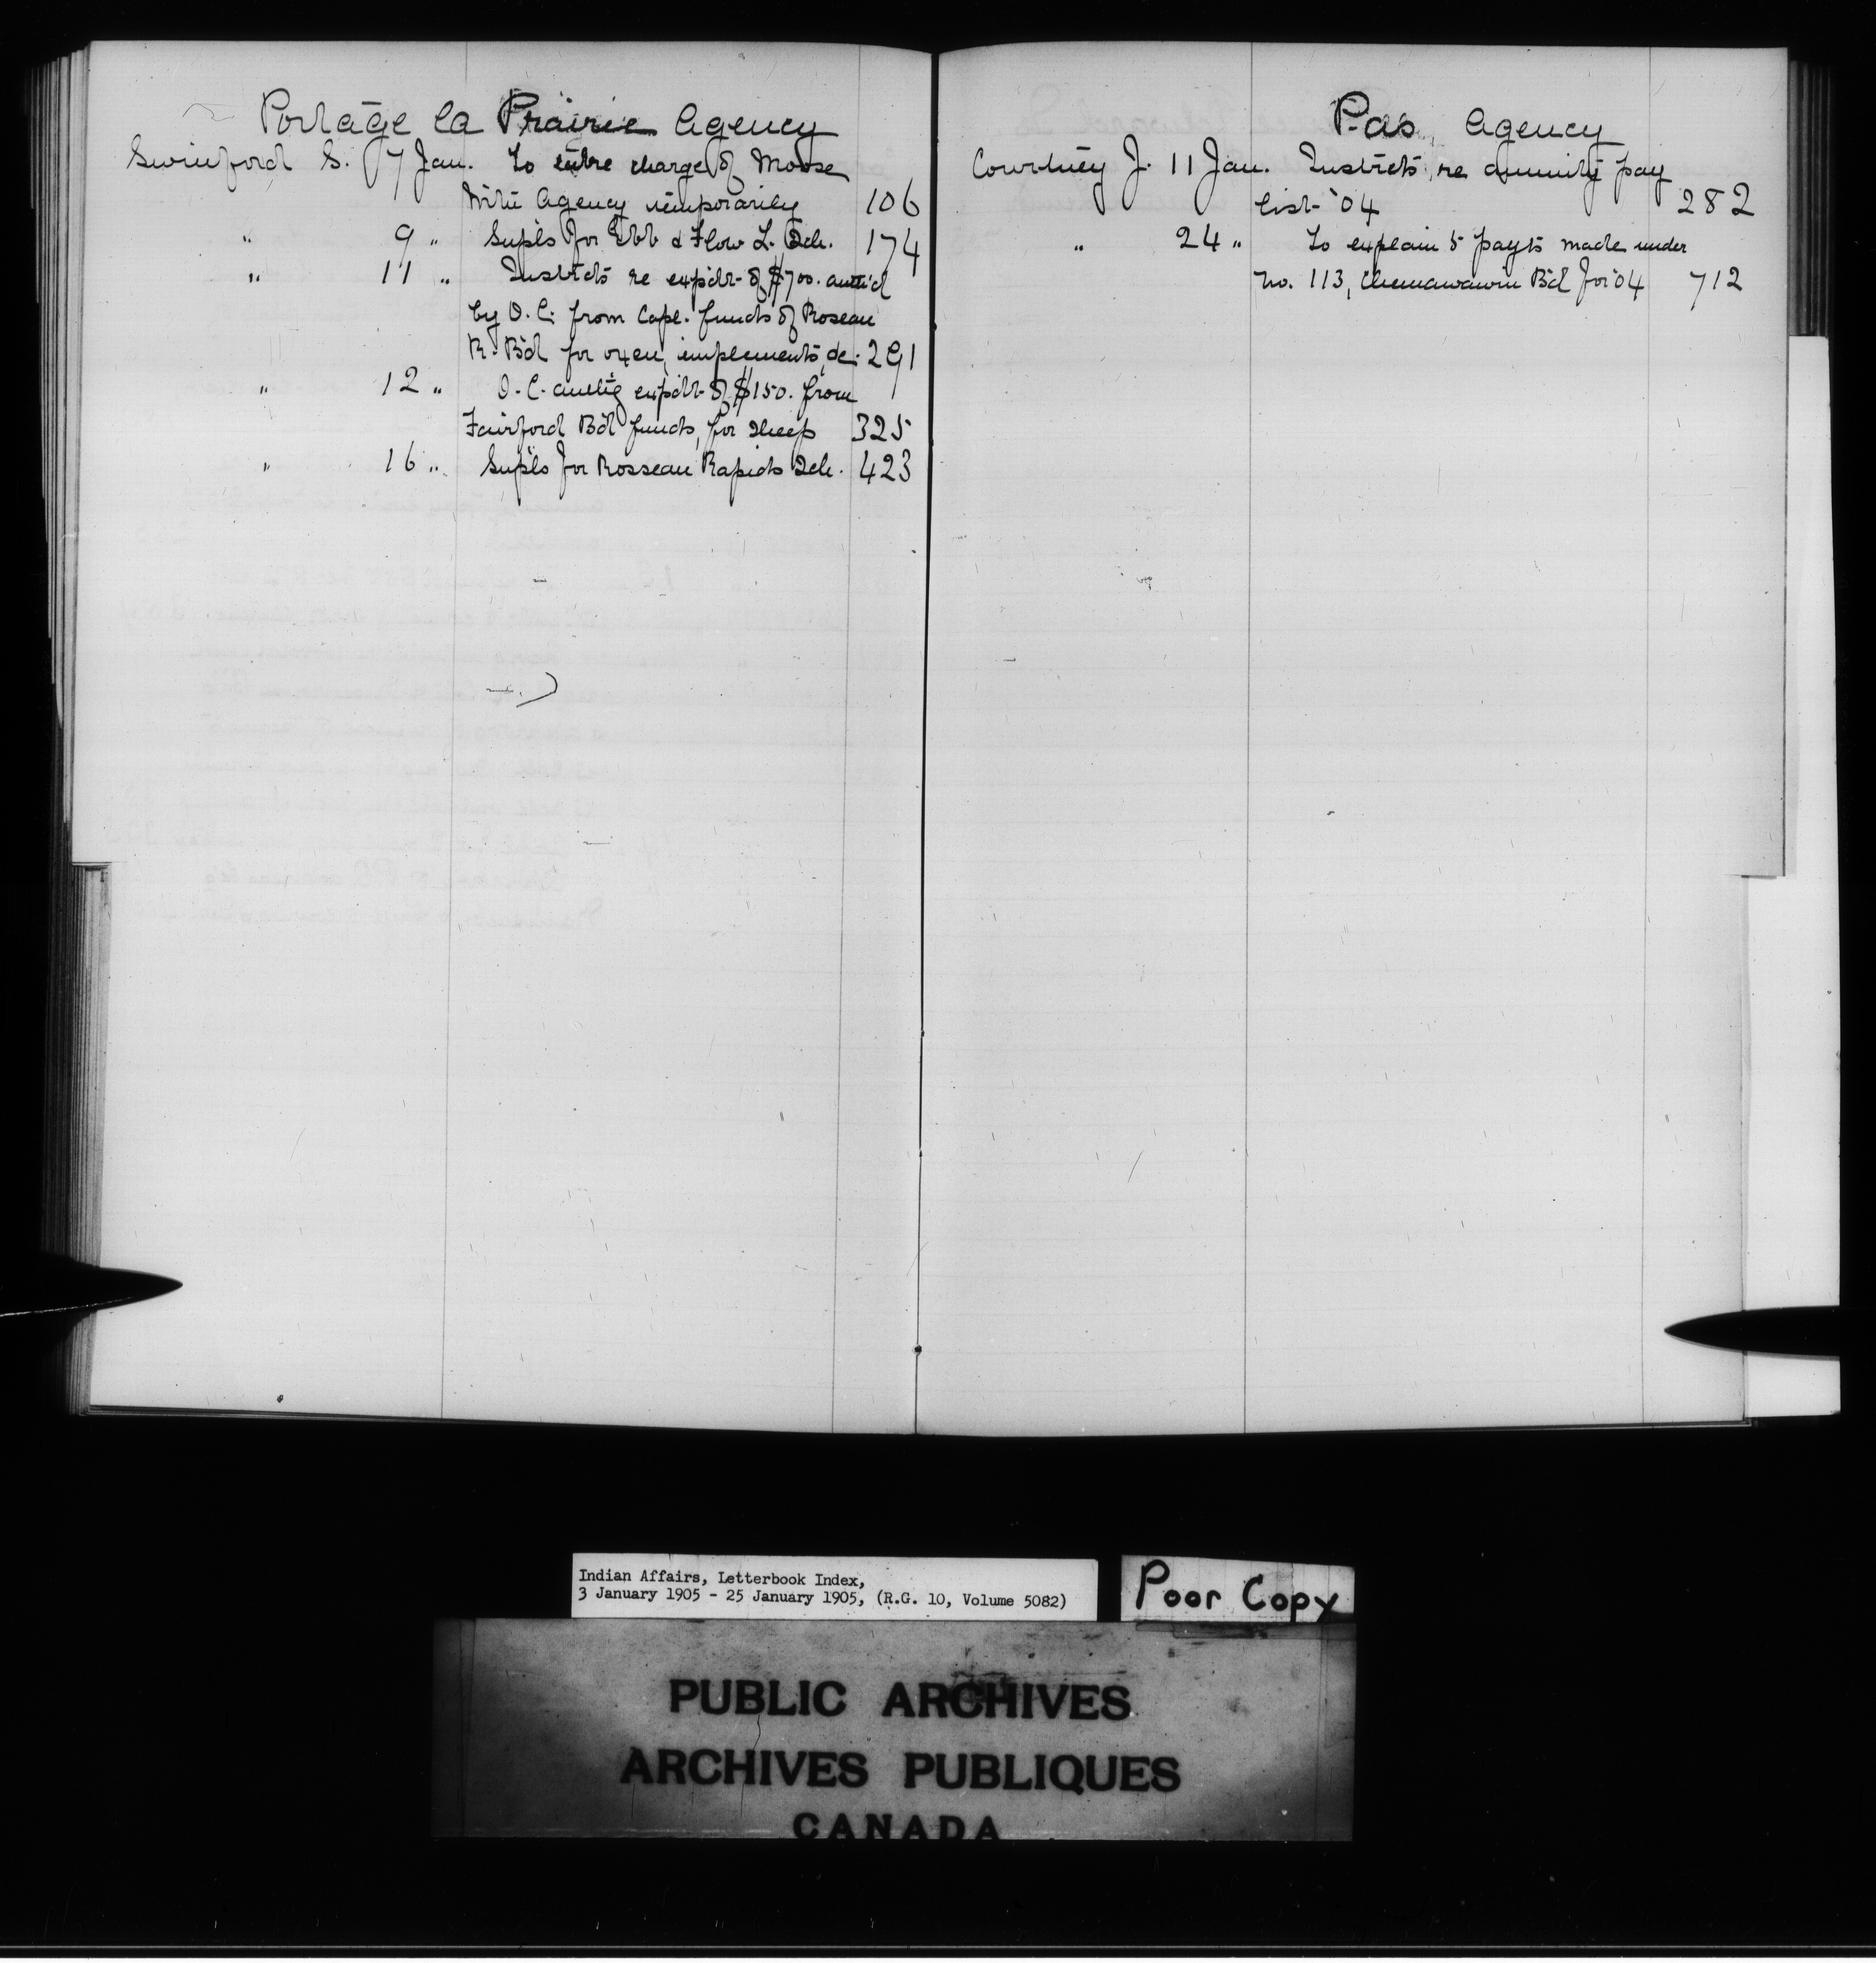 Portage la Prairie Agency
Swinford S. 7 Jan. To take charge of Moose
Mtn Agency temporarily 106
" 9 " Supls for Ebb & Flow L. Sch. 174
" 11 " Instrcts re expdtr of $700. auth'd
by O.C. from Capl. funds of Roseau
R. Bd for oxen, implements, &c. 291
" 12 " O.C. authg expdtr of $150. from
Fairford Bd funds, for sheep 325
" 16 " Supls for Rosseau Rapids Sch. 423
Pas Agency
Courtney J. 11 Jan. Instrcts, re annuity pay
list '04 282
" 24 " To explain 5 payts made under
No. 113, Chemawawin Bd for '04 712
Indian Affairs, Letterbook Index,
3 January 1905 - 25 January 1905, (R.G. 10, Volume 5082)
Poor Copy
PUBLIC ARCHIVES
ARCHIVES PUBLIQUES
CANADA